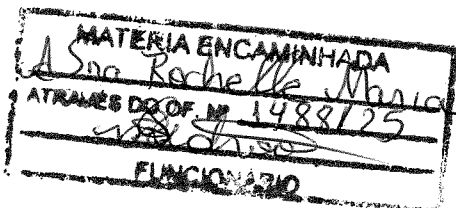 MATÉRIA ENCAMINHADA
A Sra Rochelle Maria
ATRAVÉS DO OF. Nº 1488/25
FUNCIONÁRIO